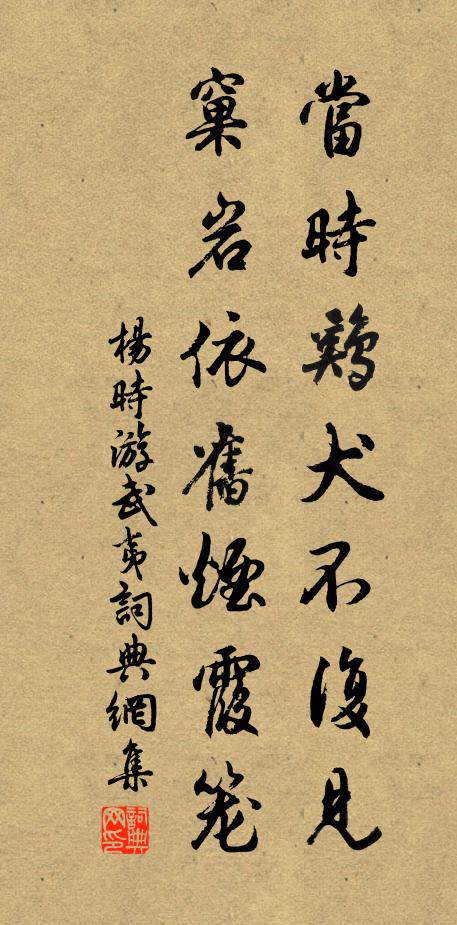 當時鷄犬不復見
窠岩依舊煙霞笼
楊時游武夷詞典網集
詞典网印